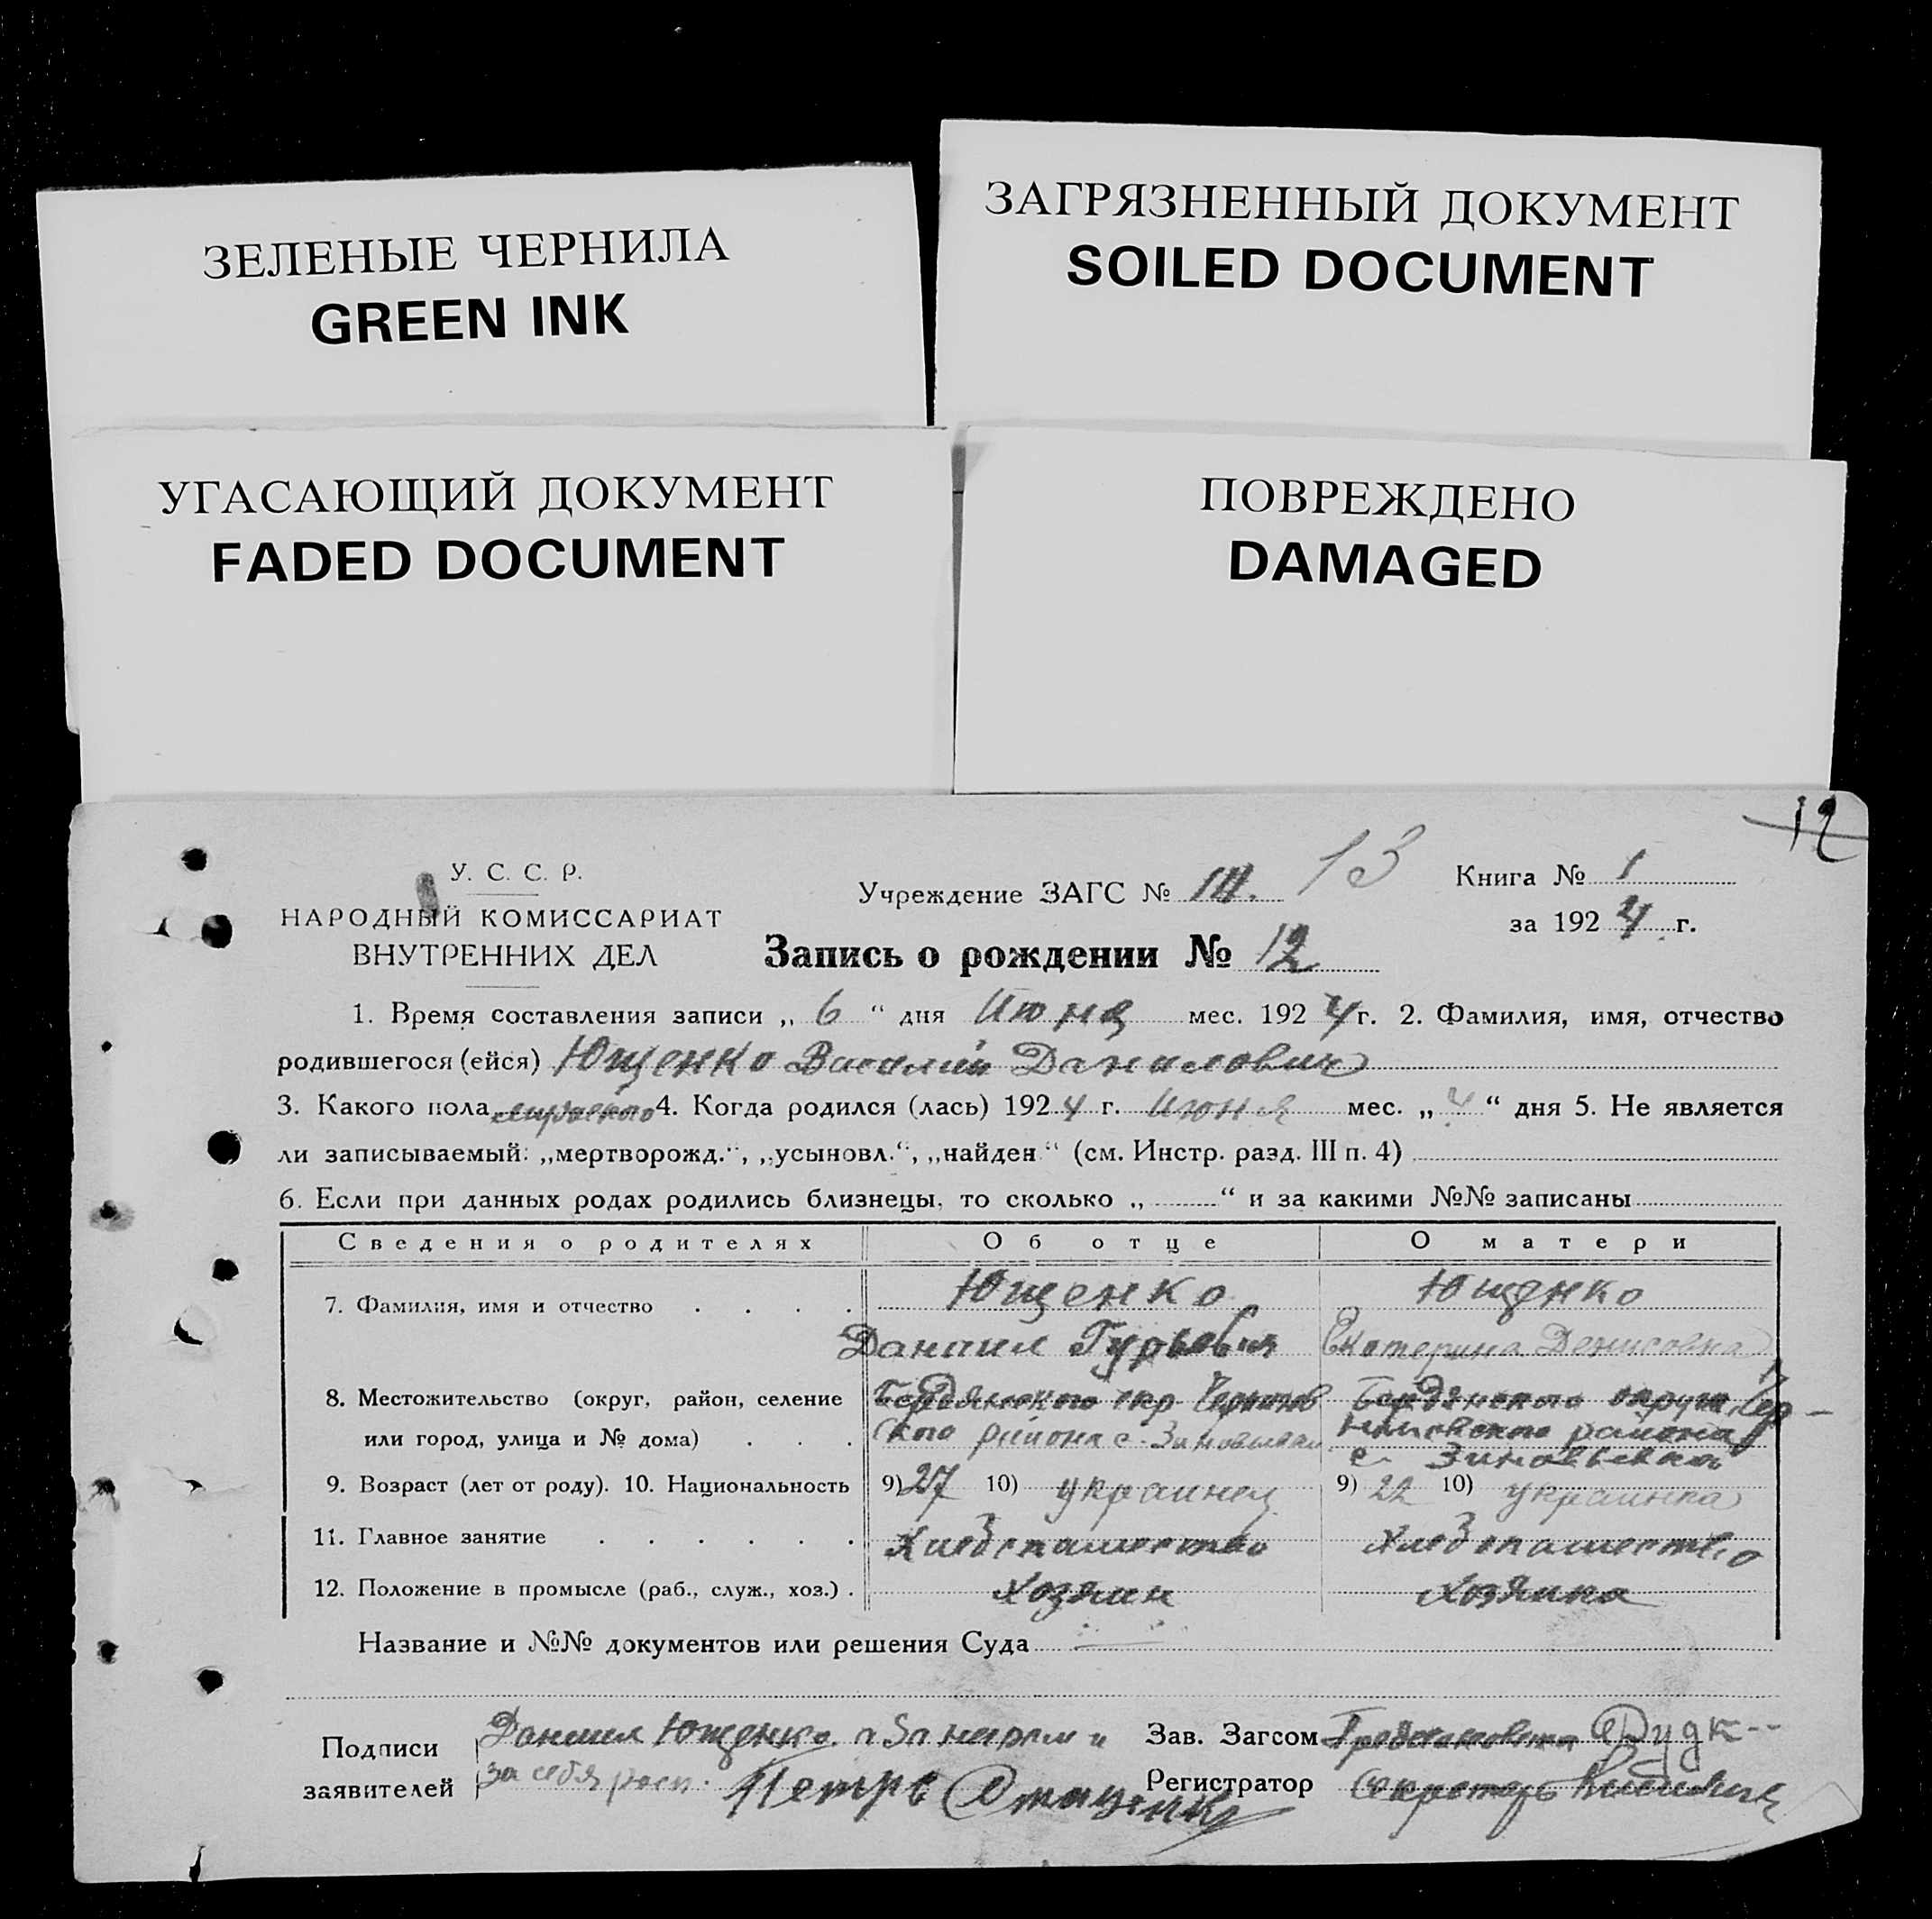 ЗЕЛЕНЫЕ ЧЕРНИЛА
GREEN INK
ЗАГРЯЗНЕННЫЙ ДОКУМЕНТ
SOILED DOCUMENT
УГАСАЮЩИЙ ДОКУМЕНТ
FADED DOCUMENT
ПОВРЕЖДЕНО
DAMAGED
12
У. С. С. Р.
НАРОДНЫЙ КОМИССАРИАТ
ВНУТРЕННИХ ДЕЛ
Учреждение ЗАГС № 13
Книга № 1
за 1924 г.
Запись о рождении № 12
1. Время составления записи „ 6 “ дня Июня мес. 1924 г. 2. Фамилия, имя, отчество
родившегося (ейся) Ющенко Василий Данилович
3. Какого пола 4. Когда родился (лась) 1924 г. Июня мес. „ 4 “ дня 5. Не является
ли записываемый: „мертворожд.“, „усыновл.“, „найден“ (см. Инстр. разд. III п. 4)
6. Если при данных родах родились близнецы, то сколько „ “ и за какими №№ записаны
Сведения о родителях Об отце О матери
7. Фамилия, имя и отчество Ющенко Ющенко
Даниил Гурьевич Екатерина Денисовна
8. Местожительство (округ, район, селение Бердянского окр Бердянского округа
или город, улица и № дома) района с. района
с.
9. Возраст (лет от роду). 10. Национальность 9) 27 10) украинец 9) 22 10) украинка
11. Главное занятие Хлебопашество Хлебопашество
12. Положение в промысле (раб., служ., хоз.) Хозяин Хозяйка
Название и №№ документов или решения Суда
Подписи Даниил Ющенко Зав. Загсом
заявителей за себя Петръ Регистратор Секретарь